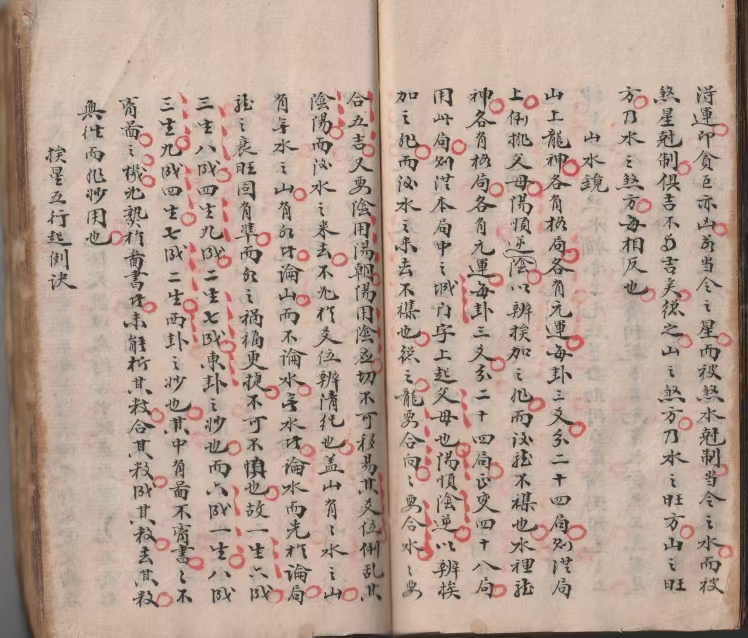 得運卽貪巨亦山前當令之星而被煞水尅制當令之水而被
煞星尅制俱吉不爲吉矣總之山之煞方乃水之旺方山之旺
方乃水之煞方每相反也
山水鏡
山上龍神各有格局各有元運每卦三爻分二十四局则
上倒挑父母陽順逆陰以辨挨加之死而論龍不襍也水裡龍
神各有格局各有元運每卦三爻分二十四局正变四十八局
用此局则本局中之城门字上起父母也陽順陰逆以辨挨
加之死而論水之来去不襍也從之龍要合向之要合水之要
合五吉又要陰用陽朝陽用陰應切不可移易其爻位倒乱其
陰陽而論水之来去不死於爻位辨清純也盖山有之水之山
有無水之山有水此論山而不論水無水此論水而先於論局
龍之衰旺固有準而水之禍福更捷不可不慎也故一生六成
三生八成四生九成二生七成東卦之妙也而六成一生八成
三生九成四生七成二生西卦之妙也其中有圖不離書之不
離圖之機死契於圖書此未能析其数合其数成其数去其数
與他而死妙用也
挨星五行起例诀